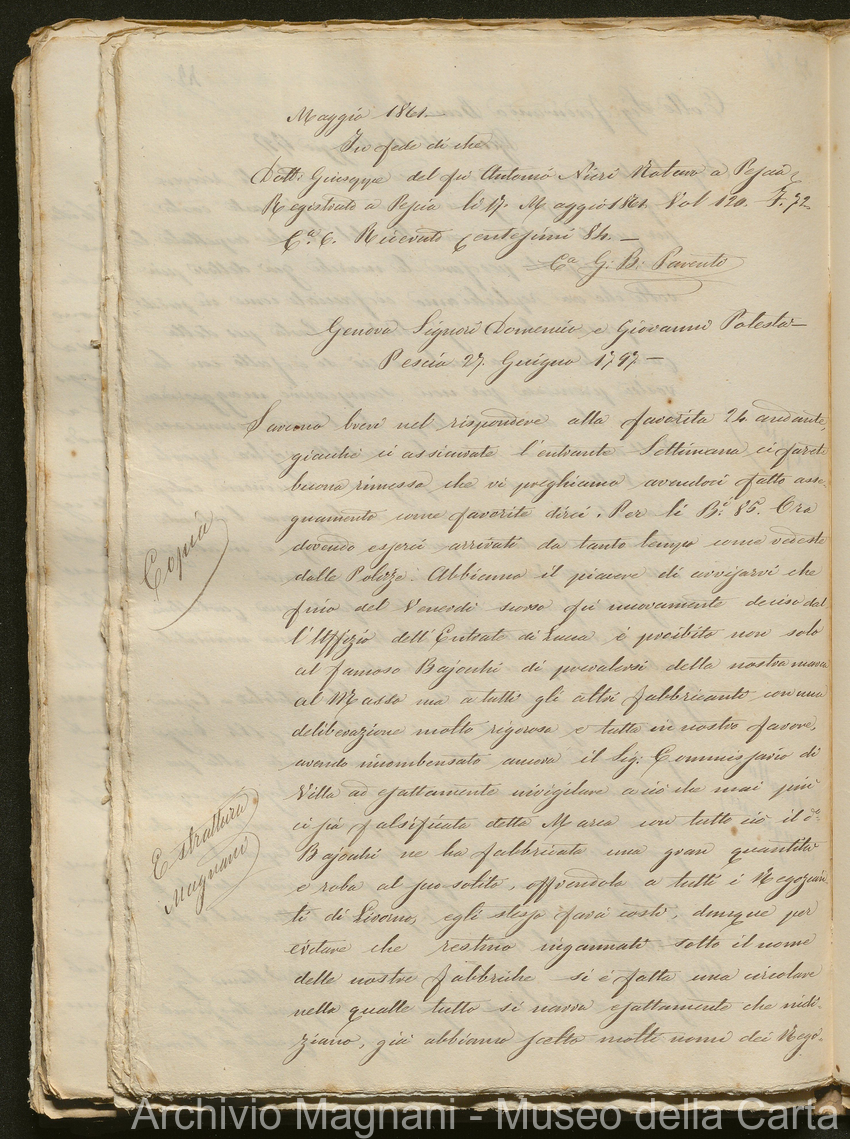 Maggio 1861.
In fede di che
Dott. Giuseppe del fu Antonio Nieri Notaro a Pescia
Registrato a Pescia li 17. Maggio 1861. Vol 120. F. 72
Ca. C. Ricevuto Centesimi 84. —
Ca G. B. Pavento
Genova Signori Domenico, e Giovanni Polestà —
Pescia 27. Guigno 1797. —
Saremo brevi nel rispondere alla favorita 24 andante,
giacchè ci assicurate l'entrante Settimana ci farete
buona rimessa che vi preghiamo avendoci fatto asse-
gnamento come favorite dirci. Per li B.i 85. Ora
dovendo esserci arrivati da tanto tempo come vedeste
dalle Polizze. Abbiamo il piacere di avvisarvi che
fino del Venerdì scorso fù nuovamente deciso dal
l'Uffizio dell'Entrate di Lucca, è proibito non solo
al famoso Bajocchi di prevalersi della nostra marca
al Masso ma a tutti gli altri fabbricanti con una
deliberazione molto rigorosa e tutta in nostro favore,
avendo incombensato ancora il Sig. Commissario di
Villa ad esattamente invigilare a ciò che mai più
ci sia falsificata detta Marca con tutto ciò il d.o
Bajocchi ne ha fabbricata una gran quantità
e roba al suo solito, offrendola a tutti i Negozian-
ti di Livorno, egli stesso farà costì, dunque per
evitare che restino ingannati sotto il nome
delle nostre fabbriche si è fatta una circolare
nella qualle tutto si narra esattamente che
ziano, già abbiamo scelto molti nomi dei Nego-
Copia
Estrattura
Magnani
Archivio Magnani - Museo della Carta